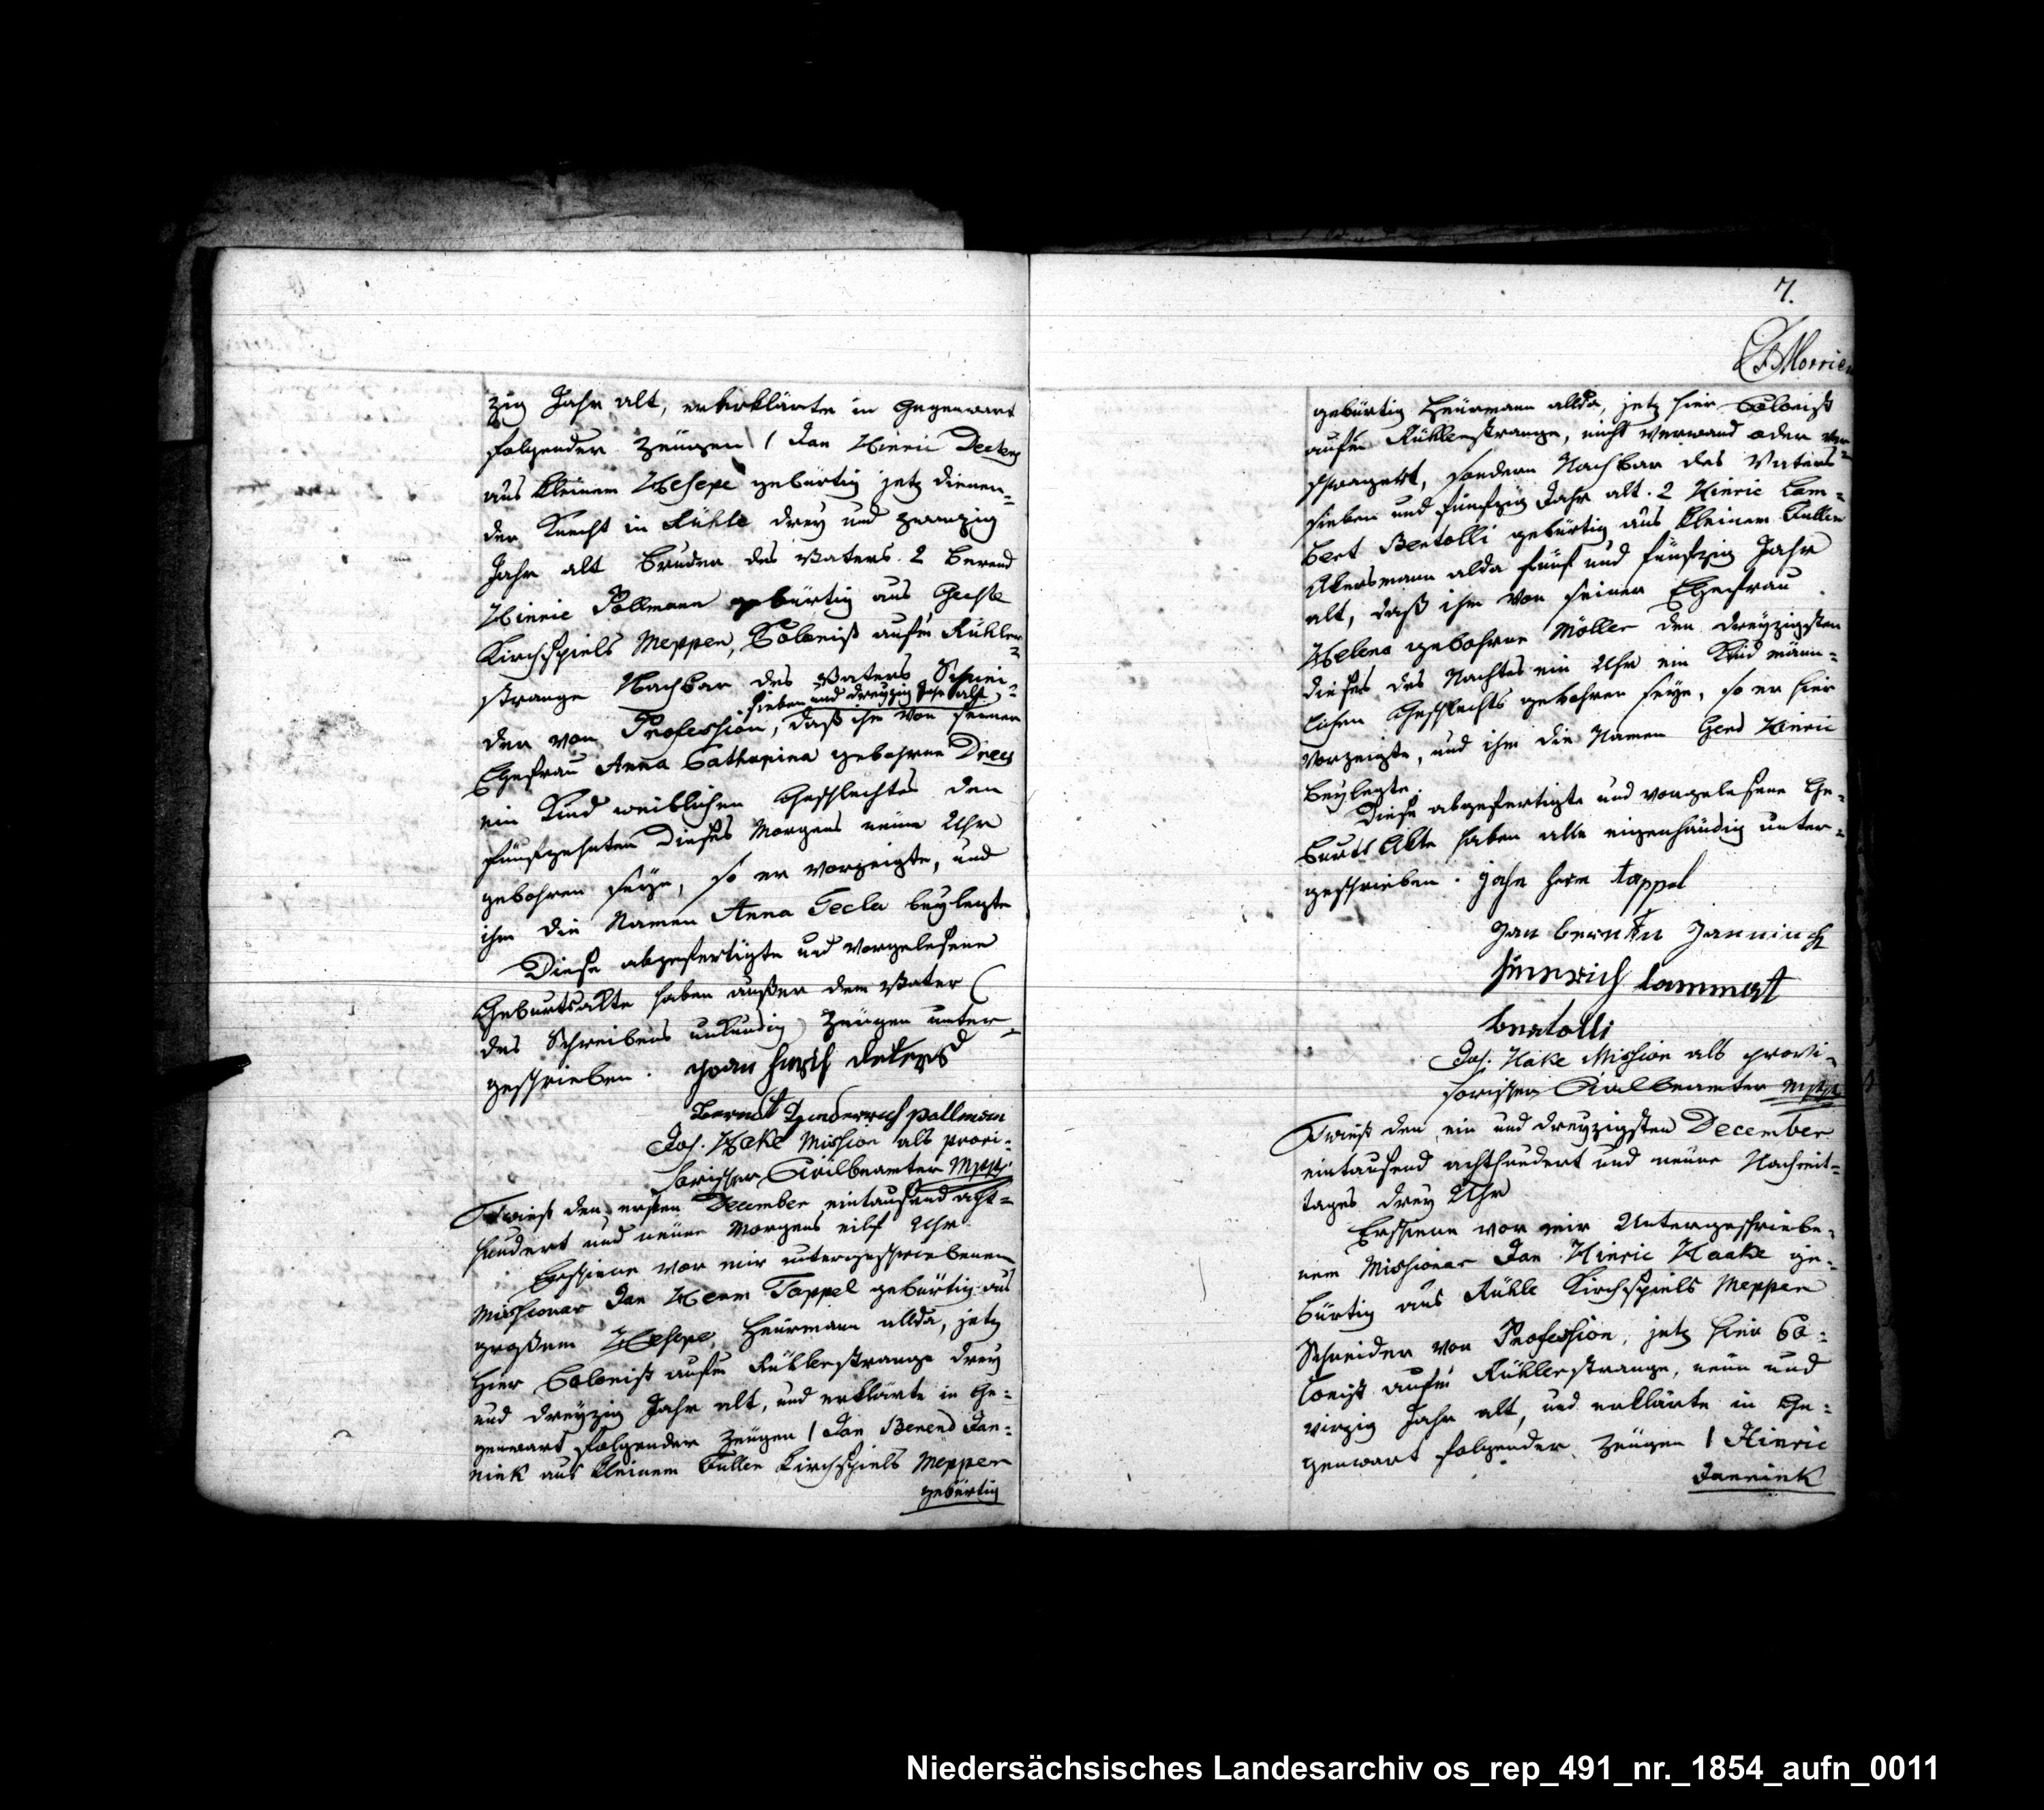 zig Jahr alt, erklärte in Gegenwart
folgender Zeugen 1 Jan Hinric Deckers
aus kleinem Hesepe gebürtig jetz dienen=
der Knecht in Rühle drey und zwanzig
Jahr alt Bruder des Vaters. 2 Berend
Hinric Pollmann gebürtig aus Geeste
Kirchspiels Meppen, Colonist aufm Rühler=
strange Nachbar des Vaters Schnei=
sieben und dreyzig Jahr alt,
der von Profession, daß ihm von seiner
Ehefrau Anna Catharina gebohrne Drees
ein Kind weiblichen Geschlechtes den
fünfzehnten dieses Morgens neun Uhr
gebohren seye, so er vorzeigte, und
ihm die Namen Anna Tecla beylegte
Diese abgefertigte und vorgelesene
Geburtsakte haben außer dem Vater (
des Schreibens unkundig) Zeugen unter=
geschrieben. Deckers
Bernd Hinderrich pollman
Jos. Hake Mission als provi=
sorischer Civilbeamter Mppr
Twist den ersten December eintausend acht=
hundert und neune Morgens eilf Uhr
Erschiene vor mir untergeschriebenen
Missionar Jan Herm Tappel gebürtig aus
großem Hesepe, Heurmann allda, jetz
hier Colonist aufm Rühlerstrange drey
und dreyzig Jahr alt, und erklärte in Ge=
genwart folgender Zeugen 1 Jan Berend Jan=
nink aus kleinem Fullen Kirchspiels Meppen
gebürtig
7.
Morrien
gebürtig Heurmann allda, jetz hier Colonist
aufm Rühlerstrange, nicht verwand oder ver=
schwagert, sondern Nachbar des Vaters
sieben und fünfzig Jahr alt. 2 Hinric Lam=
bert Bertolli gebürtig aus kleinem Fullen
Akersmann alda fünf und fünfzig Jahr
alt, daß ihm von seiner Ehefrau
Helena gebohrne Möller den dreyzigsten
dieses des Nachtes ein Uhr ein Kind männ=
lichen Geschlechts gebohren seye, so er hier
vorzeigte, und ihm die Namen Gerd Hinric
beylegte.
Diese abgefertigte und vorgelesene Ge=
burts Akte haben alle eigenhändig unter=
geschrieben. Jahn Herm tappel
Jan bernd Jannink
hinnrich lammert
bertolli
Jos. Hake Mission als provi=
sorischer Civilbeamter Mppr
Twist den ein und dreyzigsten December
eintausend achthundert und neune Nachmit=
tages drey Uhr
Erschiene vor mir Untergeschriebe=
nem Missionar Jan Hinric Haake ge=
bürtig aus Rühle Kirchspiels Meppen
Schneider von Profession, jetz hier Co=
lonist aufm Rühlerstrange, neun und
virzig Jahr alt, und erklärte in Ge=
genwart folgender Zeugen 1 Hinric
Jannink
Niedersächsisches Landesarchiv os_rep_491_nr._1854_aufn_0011